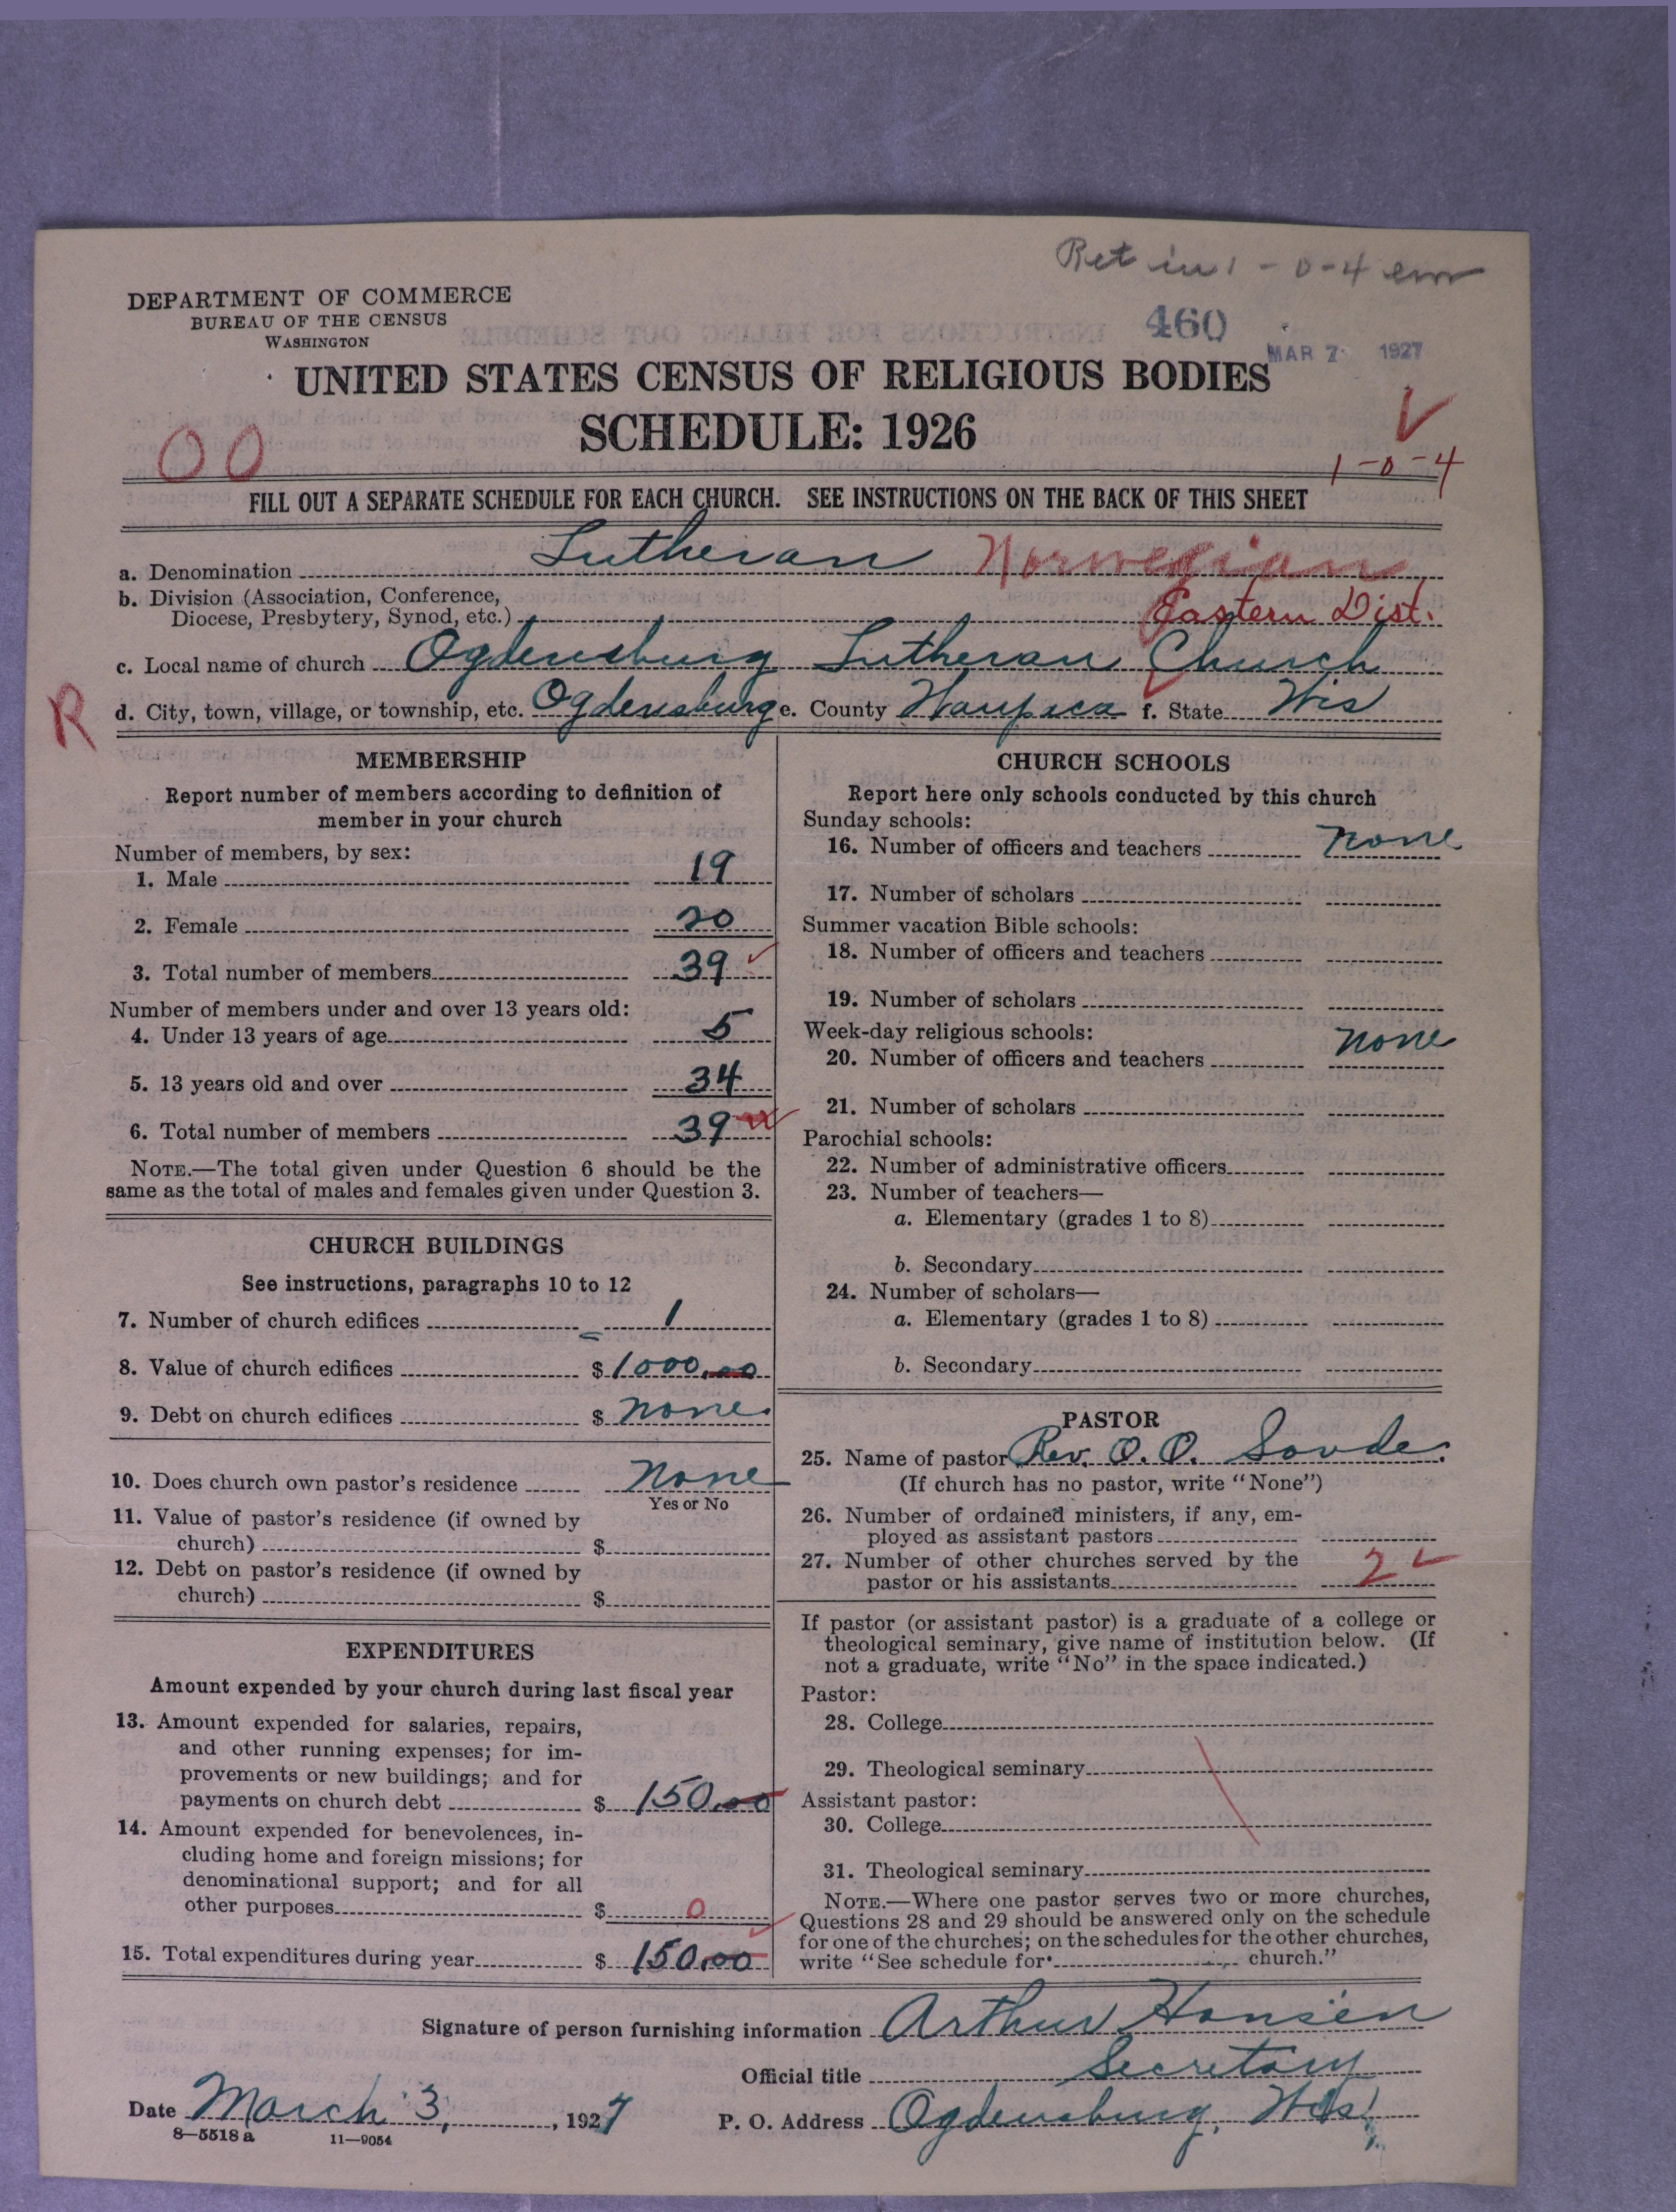 Ret in 1-0-4 em
DEPARTMENT OF COMMERCE
BUREAU OF THE CENSUS
WASHINGTON
460
MAR 7 1927
UNITED STATES CENSUS OF RELIGIOUS BODIES
SCHEDULE: 1926
00
1-0-4
FILL OUT A SEPARATE SCHEDULE FOR EACH CHURCH. SEE INSTRUCTIONS ON THE BACK OF THIS SHEET
a. Denomination Lutheran Norwegian
b. Division (Association, Conference,
Diocese, Presbytery, Synod, etc.) Eastern Dist.
c. Local name of church Ogdensburg Lutheran Church
R
d. City, town, village, or township, etc. Ogdensburg e. County Waupaca f. State Wis
MEMBERSHIP
Report number of members according to definition of
member in your church
Number of members, by sex:
1. Male 19
2. Female 20
3. Total number of members 39
Number of members under and over 13 years old:
4. Under 13 years of age 5
5. 13 years old and over 34
6. Total number of members 39
NOTE.—The total given under Question 6 should be the
same as the total of males and females given under Question 3.
CHURCH BUILDINGS
See instructions, paragraphs 10 to 12
7. Number of church edifices 1
8. Value of church edifices $ 1000.00
9. Debt on church edifices $ none.
10. Does church own pastor's residence none
Yes or No
11. Value of pastor's residence (if owned by
church) $
12. Debt on pastor's residence (if owned by
church) $
EXPENDITURES
Amount expended by your church during last fiscal year
13. Amount expended for salaries, repairs,
and other running expenses; for im-
provements or new buildings; and for
payments on church debt $ 150.00
14. Amount expended for benevolences, in-
cluding home and foreign missions; for
denominational support; and for all
other purposes $ 0
15. Total expenditures during year $ 150.00
CHURCH SCHOOLS
Report here only schools conducted by this church
Sunday schools:
16. Number of officers and teachers none
17. Number of scholars
Summer vacation Bible schools:
18. Number of officers and teachers
19. Number of scholars
Week-day religious schools:
20. Number of officers and teachers none
21. Number of scholars
Parochial schools:
22. Number of administrative officers
23. Number of teachers—
a. Elementary (grades 1 to 8)
b. Secondary
24. Number of scholars—
a. Elementary (grades 1 to 8)
b. Secondary
PASTOR
25. Name of pastor Rev. O. O. Sovde.
(If church has no pastor, write "None")
26. Number of ordained ministers, if any, em-
ployed as assistant pastors
27. Number of other churches served by the
pastor or his assistants 2
If pastor (or assistant pastor) is a graduate of a college or
theological seminary, give name of institution below. (If
not a graduate, write "No" in the space indicated.)
Pastor:
28. College
29. Theological seminary
Assistant pastor:
30. College
31. Theological seminary
NOTE.—Where one pastor serves two or more churches,
Questions 28 and 29 should be answered only on the schedule
for one of the churches; on the schedules for the other churches,
write "See schedule for church."
Signature of person furnishing information Arthur Hansen
Official title Secretary
Date March 3, 1927 P. O. Address Ogdensburg, Wis.
8—5518 a 11—9054